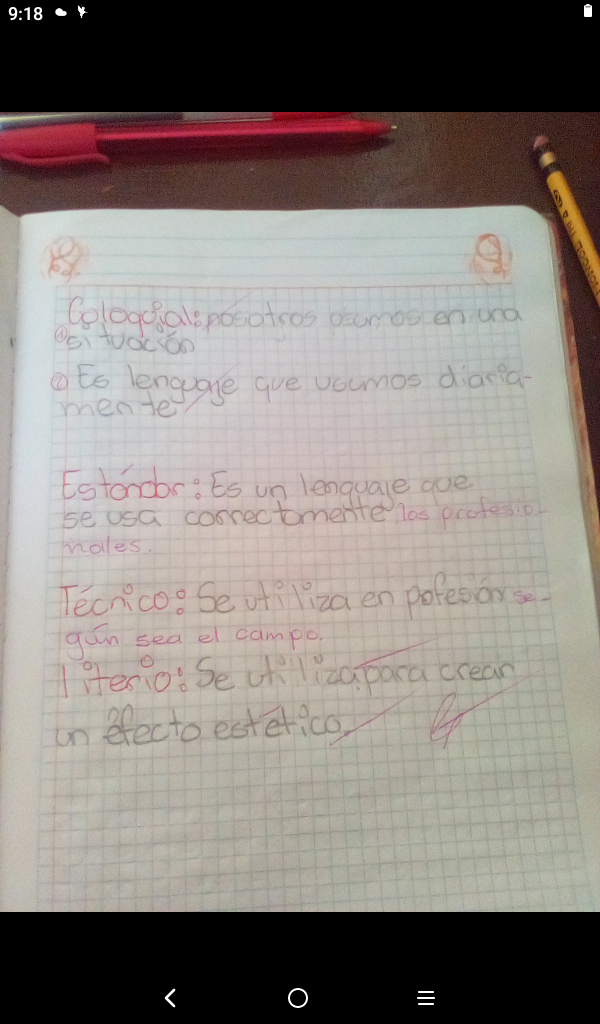 9:18
Coloquial: nosotros usamos en una
① situación
② Es lenguaje que usumos diaria-
mente
Estándar: Es un lenguaje que
se usa correctamente los profesio-
nales.
Técnico: Se utiliza en pofesión se-
gún sea el campo.
literio: Se utiliza para crear
un efecto estetico.